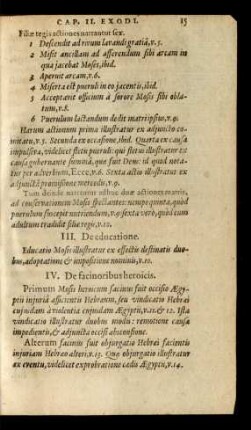 CAP. II. EXODI. 15
Filiæ regis actiones narrantur sex.
1 Descendit ad rivum lavandi gratiâ, v. 5.
2 Misit ancillam ad afferendum sibi arcam in
qua jacebat Moses, ibid.
3 Aperuit arcam, v. 6.
4 Miserta est pueruli in eo jacentis, ibid.
5 Acceptavit officium à sorore Mosis sibi obla-
tum, v. 8.
6 Puerulum lactandum dedit matri ipsius, v. 9.
Harum actionum prima illustratur ex adjuncto co-
mitatu, v. 5. Secunda ex occasione, ibid. Quarta ex causa
impulsiva, videlicet fletu pueruli: qui fletus illustratur ex
causa gubernante fœminâ, quæ fuit Deus: id quod nota-
tur per adverbium, Ecce, v. 6. Sexta actio illustratur ex
adjunctâ promissione mercedis, v. 9.
Tum deinde narrantur istius duæ actiones matris,
ad conservationem Mosis spectantes: nempe quinta, quòd
puerulum suscepit nutriendum, v. 9. sexta verò, quòd cum
adultum tradidit filiæ regis, v. 10.
III. De educatione.
Educatio Mosis illustratur ex effectis destinatis duo-
bus, adoptatione & impositione nominis, v. 10.
IV. De facinoribus heroicis.
Primum Mosis heroicum facinus fuit occisio Ægy-
ptii injuriâ afficientis Hebræum, seu vindicatio Hebræi
cujusdam à violentia cujusdam Ægyptii, v. 11. & 12. Ista
vindicatio illustratur duobus modis: remotione causæ
impedientis, & adjunctâ occisi absconsione.
Alterum facinus fuit objurgatio Hebræi facientis
injuriam Hebræo alteri, v. 13. Quæ objurgatio illustratur
ex eventu, videlicet exprobratione cædis Ægyptii, v. 14.